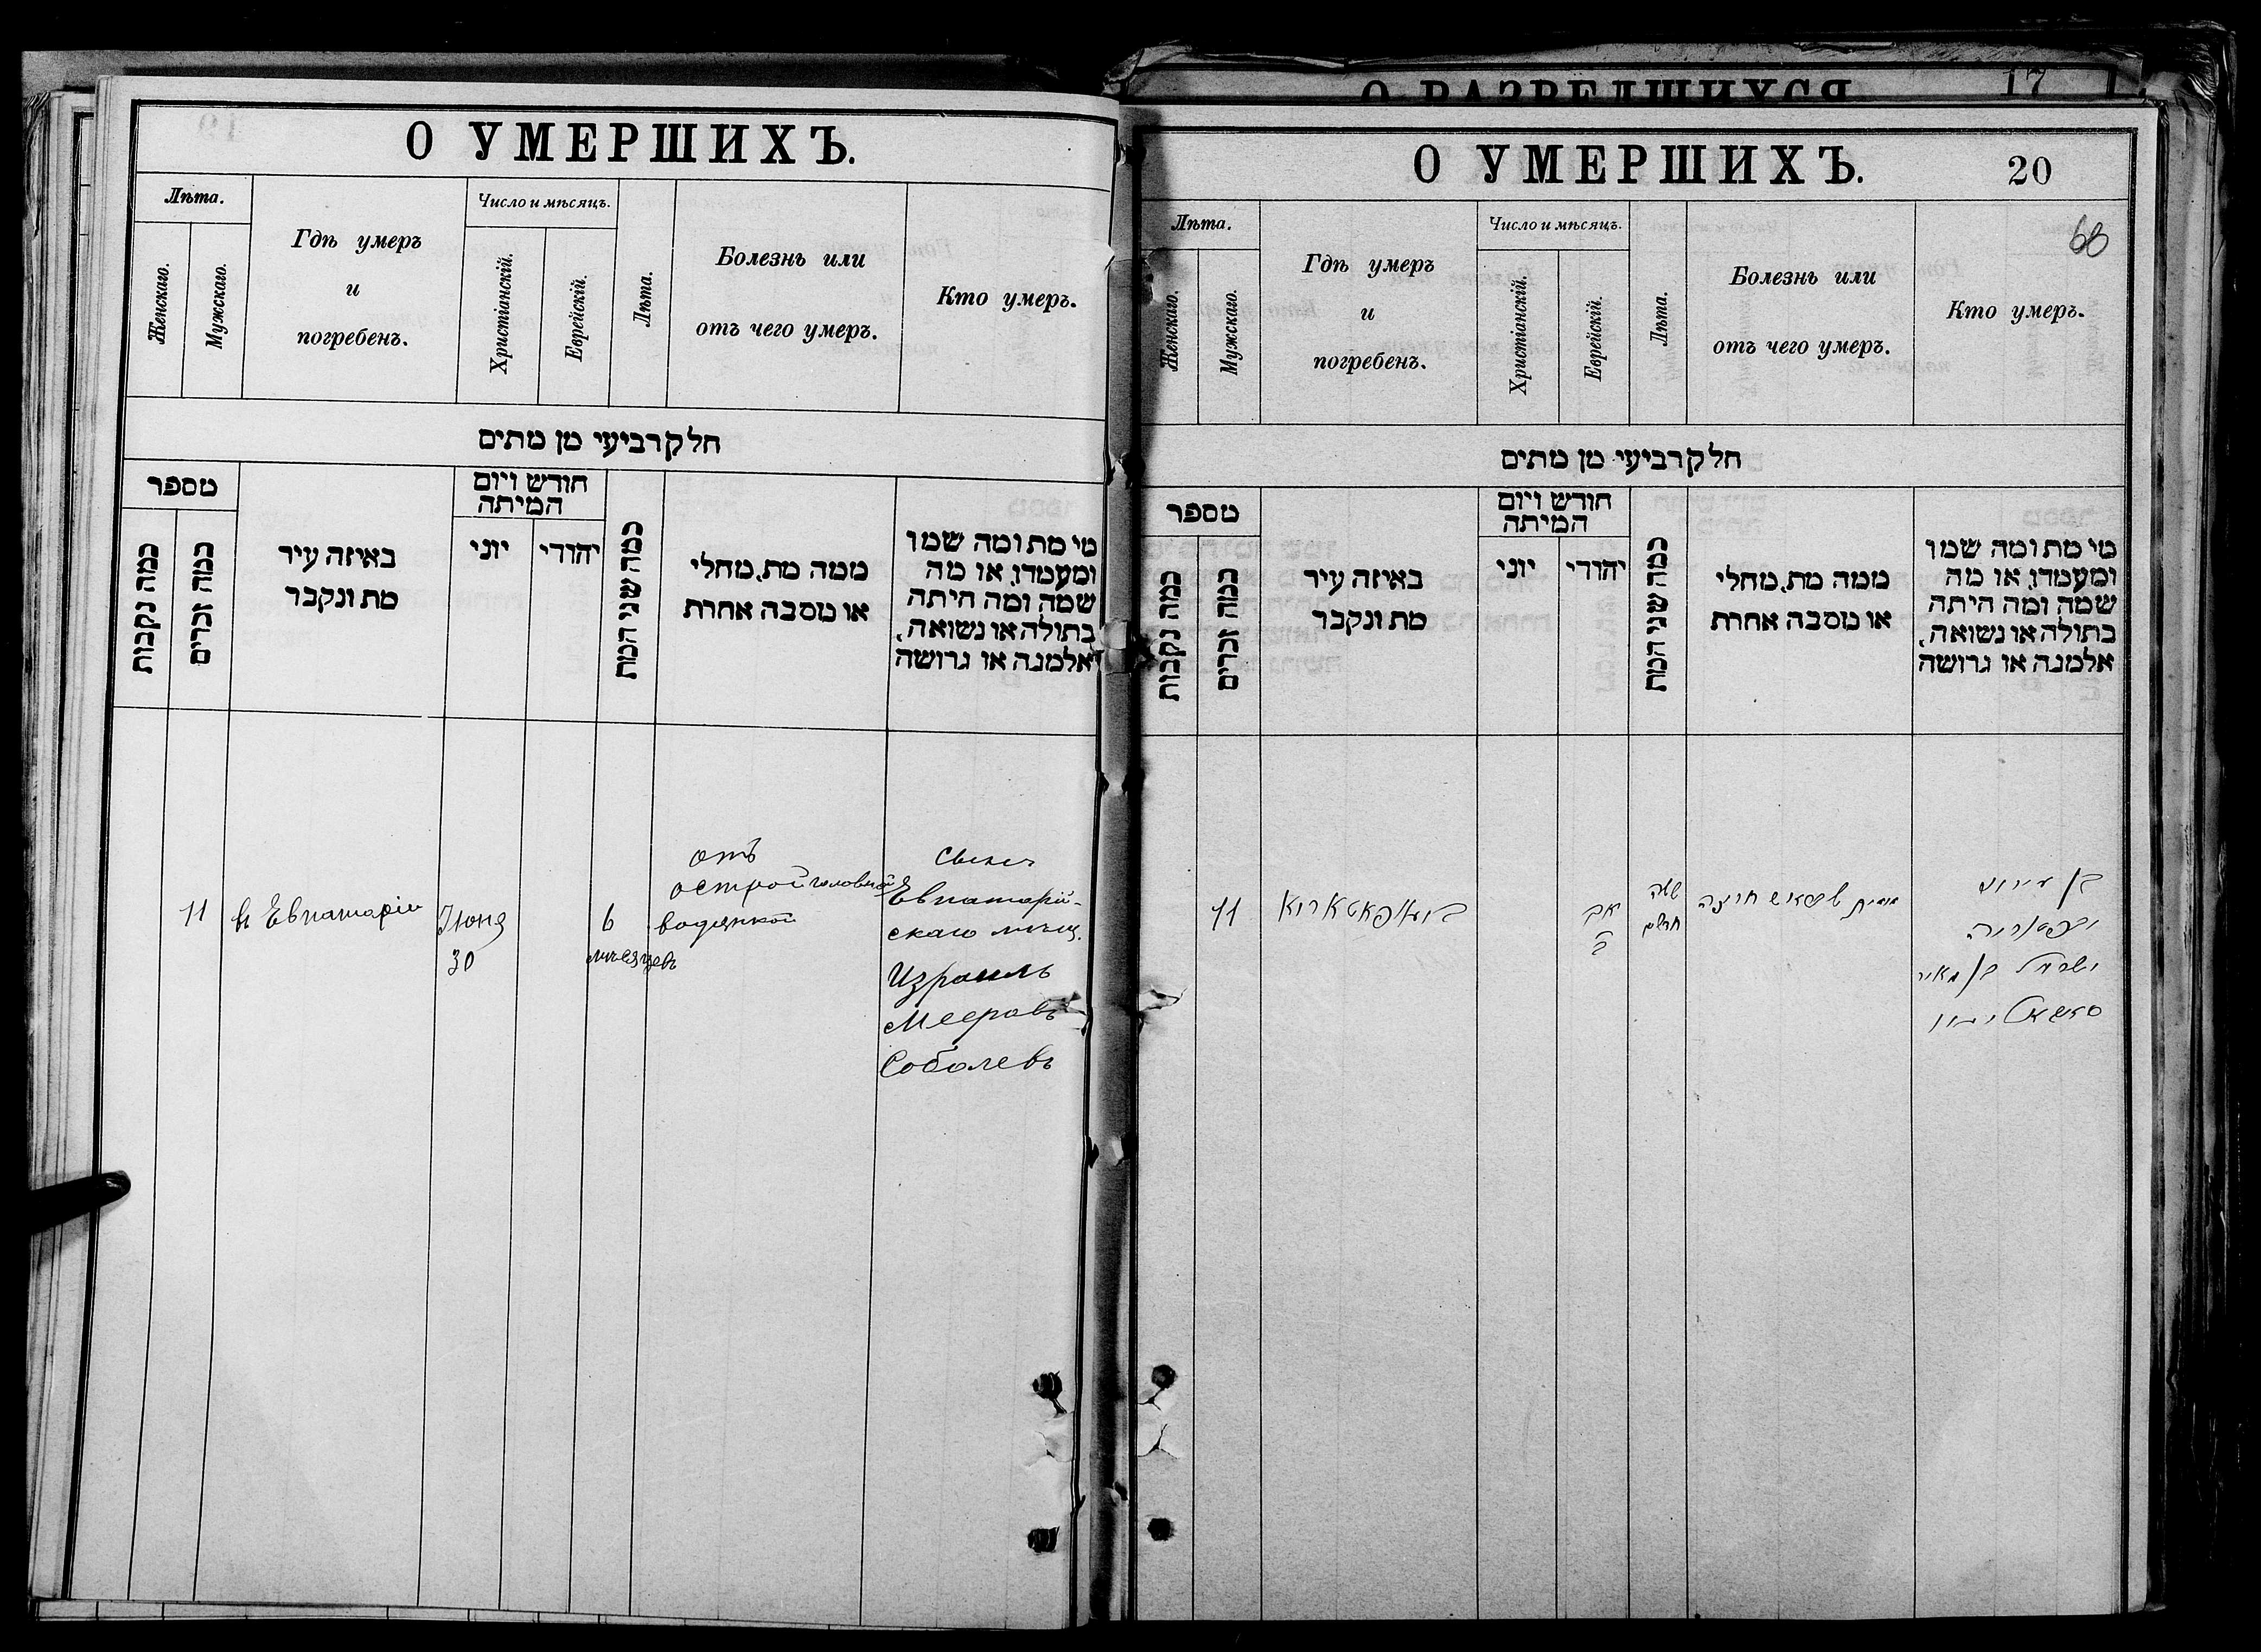 О РАЗВЕДШИХСЯ
17
О УМЕРШИХЪ.
Лѣта.
Женскаго.
Мужскаго.
Гдѣ умеръ
и
погребенъ.
Число и мѣсяцъ.
Христіанскій.
Еврейскій.
Лѣта.
Болезнь или
отъ чего умеръ.
Кто умеръ.
חלק רביעי מן מתים
מספר
כמה נקבות
כמה זכרים
באיזה עיר
מת ונקבר
חודש ויום
המיתה
יוני
יהודי
כמה שני המת
ממה מת, מחלי
או מסבה אחרת
מי מת ומה שמו
ומעמדו, או מה
שמה ומה היתה
בתולה או נשואה,
אלמנה או גרושה
11
въ Евпаторіи
Іюня
30
6
мѣсяцевъ
отъ
острой головной
водянкой
Сынъ
Евпаторій-
скаго мѣщ.
Израиль
Мееровъ
Соболевъ
О УМЕРШИХЪ.
20
68
Лѣта.
Женскаго.
Мужскаго.
Гдѣ умеръ
и
погребенъ.
Число и мѣсяцъ.
Христіанскій.
Еврейскій.
Лѣта.
Болезнь или
отъ чего умеръ.
Кто умеръ.
חלק רביעי מן מתים
מספר
כמה נקבות
כמה זכרים
באיזה עיר
מת ונקבר
חודש ויום
המיתה
יוני
יהודי
כמה שני המת
ממה מת, מחלי
או מסבה אחרת
מי מת ומה שמו
ומעמדו, או מה
שמה ומה היתה
בתולה או נשואה,
אלמנה או גרושה
11
אב
ששה
חדשים
בן
ישראל בן מאיר